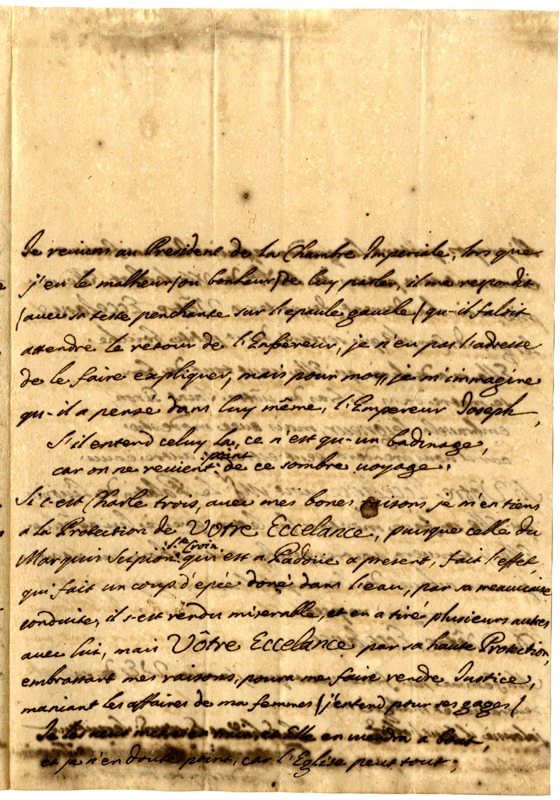 Je reviens au President de la Chambre Imperiale, lors que
j'eu le malheur (ou bonheur) de luy parler, il me respondit
(avec sa teste penchante sur l'epaule gauche) qu-il faloit
attendre le retour de l'Empereur, je n'eu pas l'adresse
de le faire expliquer, mais pour moy, je m'immagine
qu-il a pensé dans luy même, l'Empereur Joseph,
S'il entend celuy la, ce n'est qu-un badinage,
car on ne revient point de ce sombre voyage.
Si c-est Charle trois, avec mes bones raisons je m'en tiens
a la Protection de Vôtre Eccelance, puisque celle du
Marquis Scipion Ste Croix qui est a Padoüe a present, fait l'effet,
qui fait un coup d'epée doné dans l'eau, par sa meauvaise
conduite, il s-est rendu miserable, et en a tiré plusieurs autres
avec lui, mais Vôtre Eccelance par sa haute Protection,
embrassant mes raisons, poura me faire rendre Justice,
maniant les affaires de ma femme (j'entend pour ses gages)
Elle en viendra a bout,
et je n'en doute point, car l'Eglise peut tout.